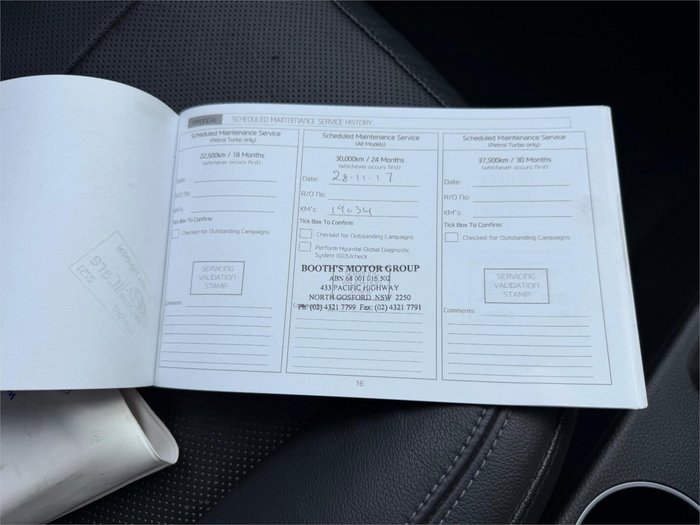 HYUNDAI SCHEDULED MAINTENANCE SERVICE HISTORY
Scheduled Maintenance Service
(Petrol Turbo only)
22,500km / 18 Months
(whichever occurs first)
Date:
R/O No:
KM's:
Tick Box To Confirm
Checked for Outstanding Campaigns
SERVICING
VALIDATION
STAMP
Comments:
Scheduled Maintenance Service
(All Models)
30,000km / 24 Months
(whichever occurs first)
Date: 28.11.17
R/O No:
KM's: 19034
Tick Box To Confirm
Checked for Outstanding Campaigns
Perform Hyundai Global Diagnostic
System (GDS)check
BOOTH'S MOTOR GROUP
ABN 68 001 016 502
433 PACIFIC HIGHWAY
NORTH GOSFORD NSW 2250
Ph: (02) 4321 7799 Fax: (02) 4321 7791
Scheduled Maintenance Service
(Petrol Turbo only)
37,500km / 30 Months
(whichever occurs first)
Date:
R/O No:
KM's:
Tick Box To Confirm
Checked for Outstanding Campaigns
SERVICING
VALIDATION
STAMP
Comments:
16